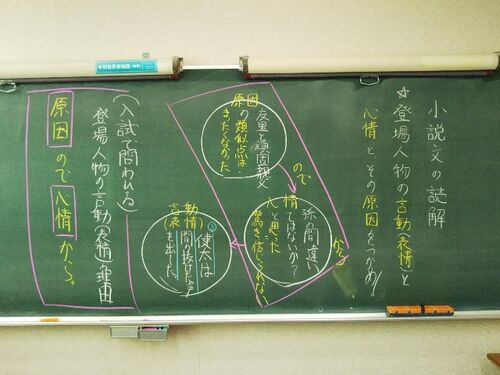 小説文の読解
☆登場人物の言動(表情)と
心情とその原因をつかめ!
原因
友里と頑固親父
の類似点は
まったくなかった
ので
孫、間違い
ではないか?
心情
と思った
驚き、信じられない
から
①健太は
間の抜けた声
も出した。
言動
(表情)
(入試で問われる)
登場人物の言動(表情)の理由
原因ので心情から。